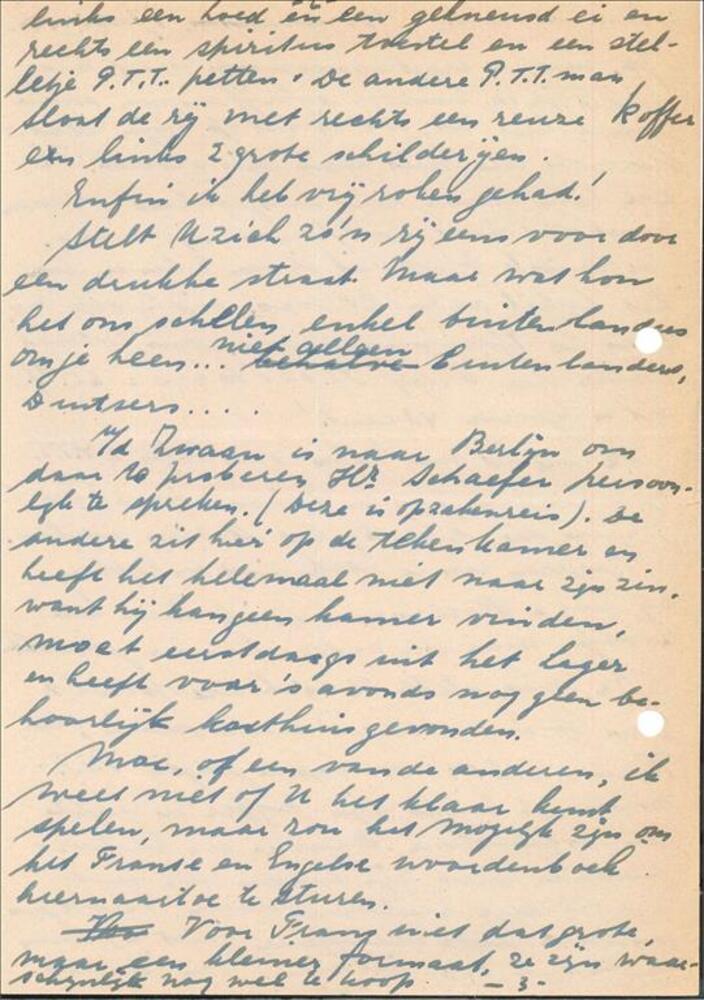 links een hoed en een gekneusd ei en
rechts een spiritus toestel en een stel-
letje P.T.T. petten. De andere P.T.T. man
sloot de rij met rechts een reuze koffer
en links 2 grote schilderijen.
Enfin ik heb vrij roken gehad!
Stelt U zich zo'n rij eens voor door
een drukke straat. Maar wat kon
het ons schelen, enkel buitenlanders
om je heen... niet alleen buitenlanders,
Duitsers....
v/d Zwaan is naar Berlijn om
daar te proberen Hr. Schaefer persoon-
lijk te spreken. (Deze is op zakenreis). De
andere zit hier op de tekenkamer en
heeft het helemaal niet naar zijn zin,
want hij kan geen kamer vinden,
moet eerstdaags uit het lager
en heeft voor 's avonds nog geen be-
hoorlijk kosthuis gevonden.
Moe, of een van de anderen, ik
weet niet of U het klaar kunt
spelen, maar zou het mogelijk zijn om
het Franse en Engelse woordenboek
hiernaartoe te sturen.
Voor Frans niet dat grote,
maar een kleiner formaat, ze zijn waar-
schijnlijk nog wel te koop -3-